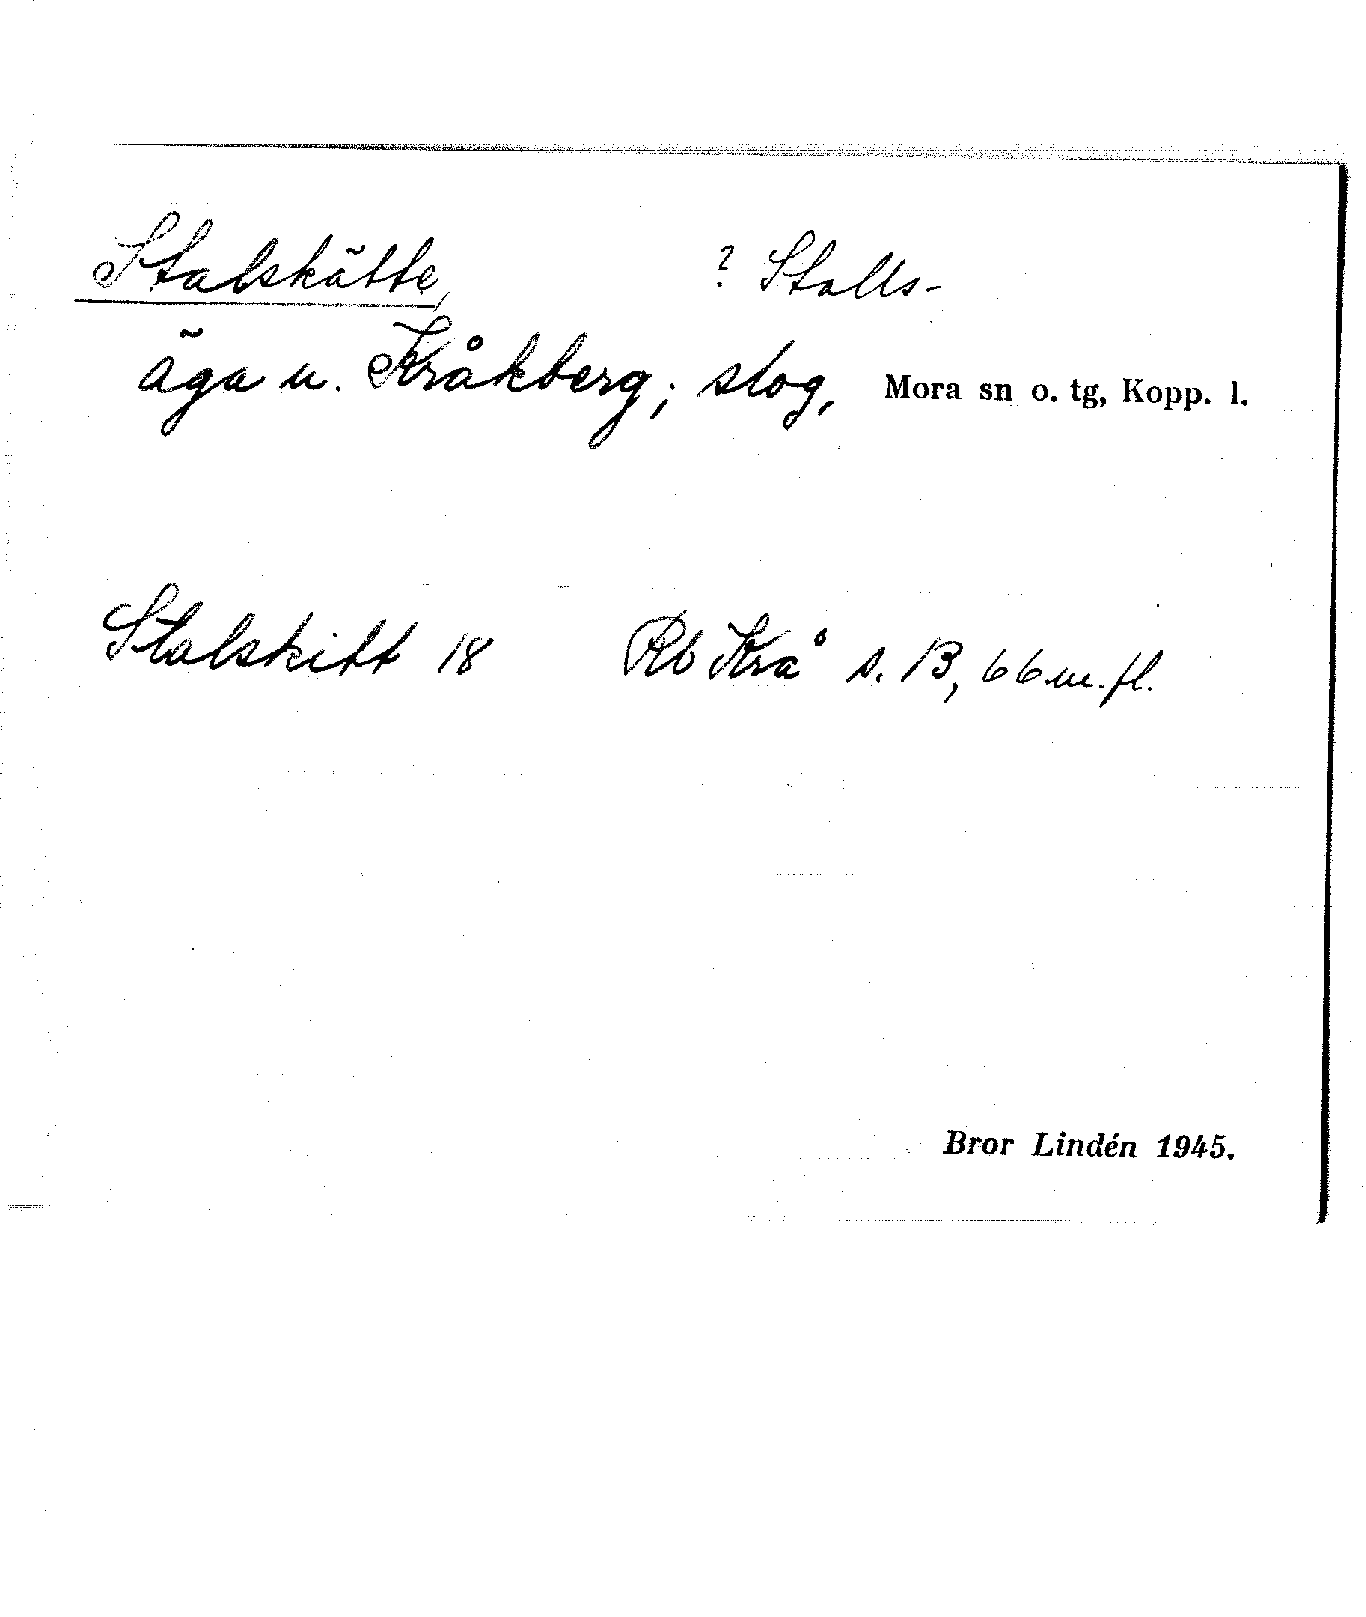 Stalskätte, ? Stalls-
äga u. Kråkberg; slog, Mora sn o. tg, Kopp. l.
Stalskitt 18 Rb Krå s. 13, 66 m. fl.
Bror Lindén 1945.